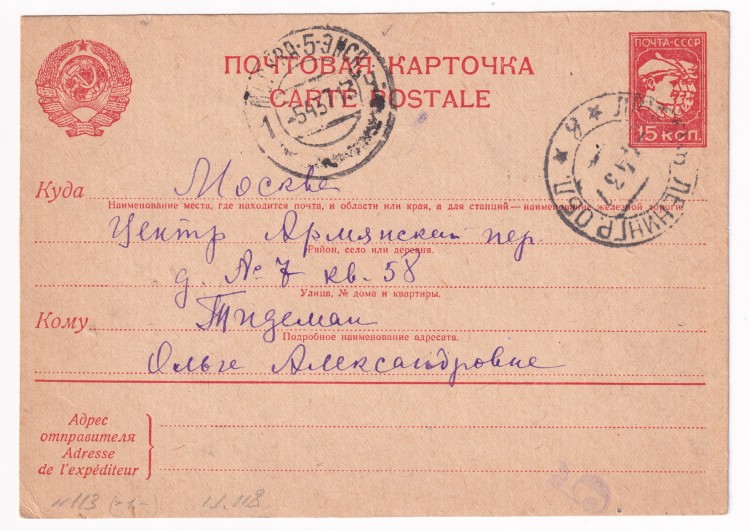 ПОЧТОВАЯ КАРТОЧКА
CARTE POSTALE
ПОЧТА-СССР
15 КОП.
МОСКВА·5·ЭКСП
-5.4.37
1
ЛЕНИНГР.ОБЛ.
4 37
Куда Москва
Наименование места, где находится почта, и области или края, а для станций — наименование железной дороги.
Центр Армянский пер.
Район, село или деревня.
д. № 7 кв. 58
Улица, № дома и квартиры.
Кому Тидеман
Подробное наименование адресата.
Ольге Александровне
Адрес
отправителя
Adresse
de l'expéditeur